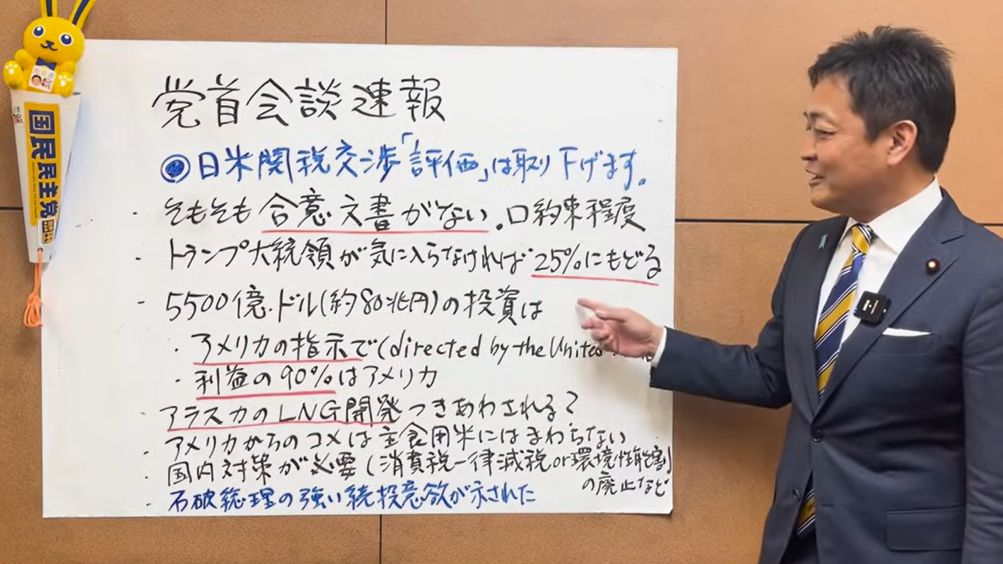 国民民主党
党首会談速報
◉日米関税交渉「評価」は取り下げます。
・そもそも合意文書がない。口約束程度
・トランプ大統領が気に入らなければ25%にもどる
・5500億ドル(約80兆円)の投資は
・アメリカの指示で(directed by the United
・利益の90%はアメリカ
・アラスカのLNG開発つきあわされる?
・アメリカからのコメは主食用米にはまわらない
・国内対策が必要(消費税一律減税or環境性能割)
の廃止など
・石破総理の強い続投意欲が示された